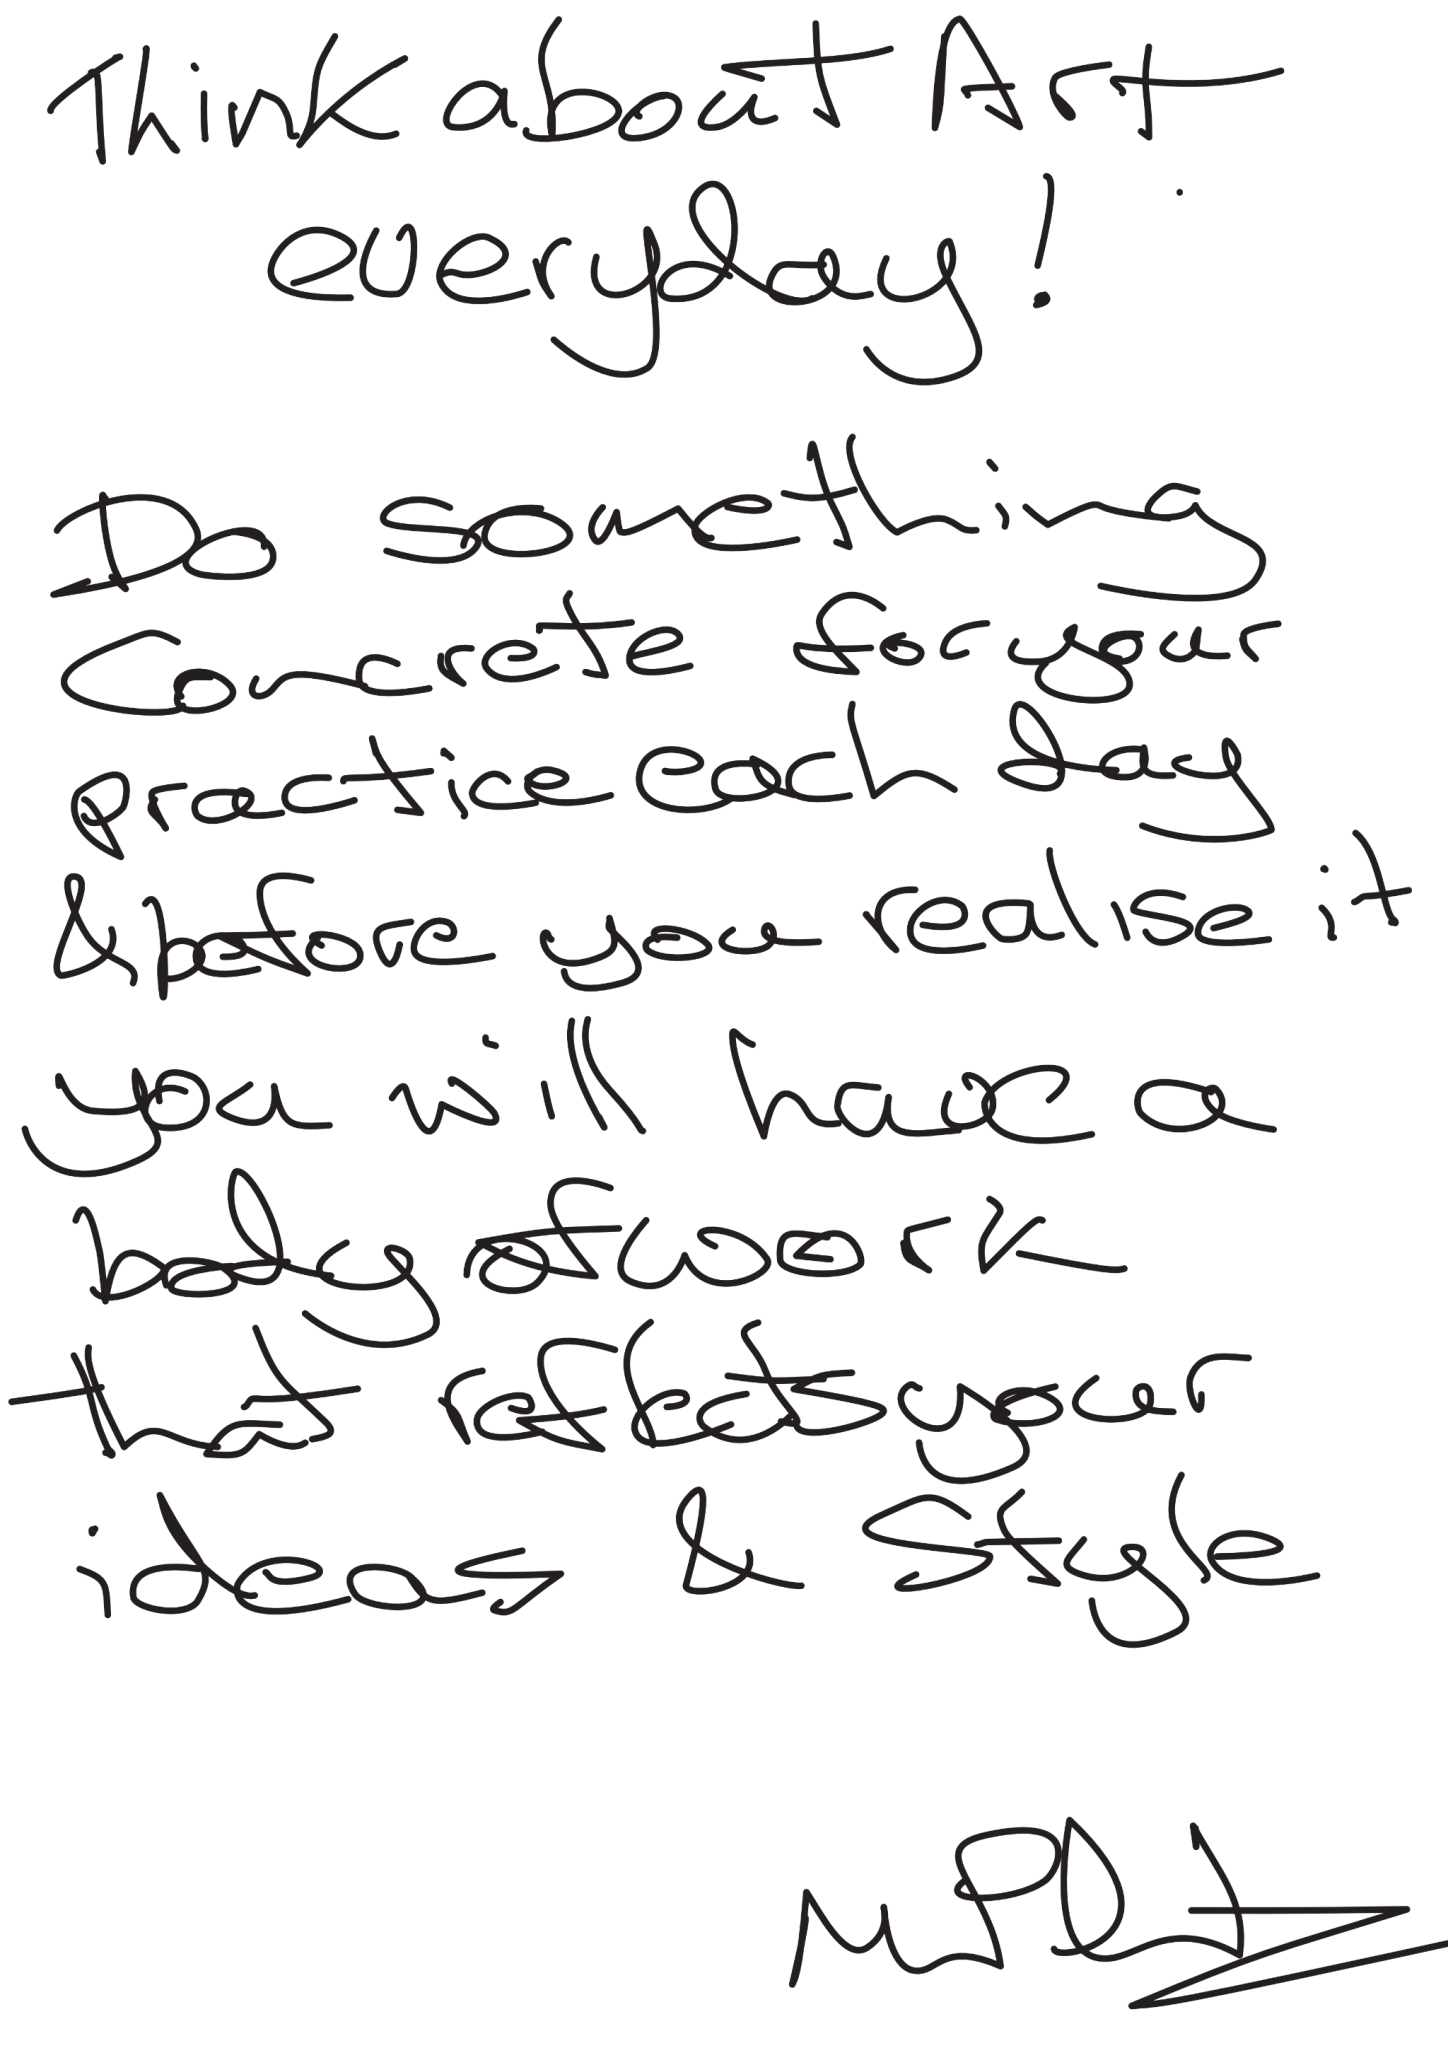 Think about Art
everyday!
Do something
Concrete for your
practice each day
& before you realise it
you will have a
body of work
that reflects your
ideas & Style